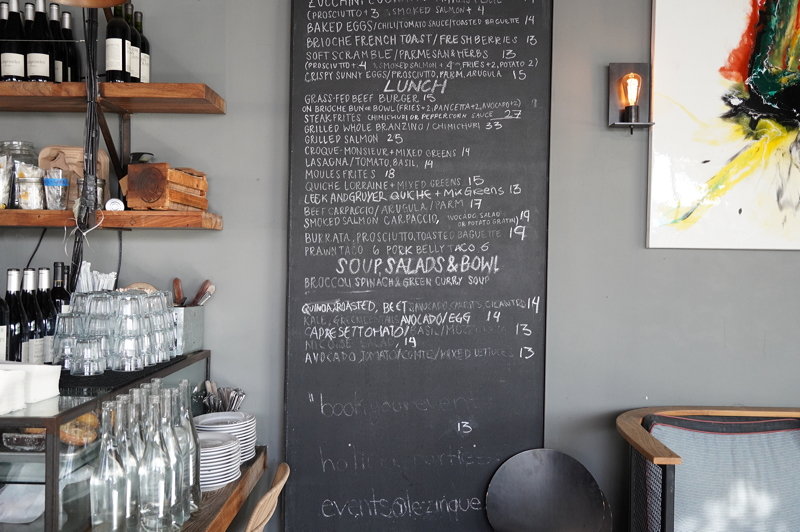 (PROSCIUTTO + 3 SMOKED SALMON + 4
BAKED EGGS/CHILI/TOMATO SAUCE/TOASTED BAGUETTE 14
BRIOCHE FRENCH TOAST/FRESH BERRIES 13
SOFT SCRAMBLE/PARMESAN & HERBS 13
(PROSCIUTTO + 4 SMOKED SALMON + 4, FRIES + 2, POTATO 2)
CRISPY SUNNY EGGS/PROSCIUTTO, PARM, ARUGULA 15
LUNCH
GRASS-FED BEEF BURGER 15
ON BRIOCHE BUN OR BOWL (FRIES + 2, PANCETTA + 2, AVOCADO + 2)
STEAK FRITES CHIMICHURI OR PEPPERCORN SAUCE 27
GRILLED WHOLE BRANZINO/CHIMICHURI 33
GRILLED SALMON 25
CROQUE-MONSIEUR + MIXED GREENS 14
LASAGNA/TOMATO, BASIL, 14
MOULES FRITES 18
QUICHE LORRAINE + MIXED GREENS 15
LEEK AND GRUYER QUICHE + MIX Greens 13
BEEF CARPACCIO/ARUGULA/PARM 17
SMOKED SALMON CARPACCIO, AVOCADO, SALAD OR POTATO GRATIN 19
BURRATA, PROSCIUTTO, TOASTED BAGUETTE 19
PRAWN TACO 6 PORK BELLY TACO 6
SOUP, SALADS & BOWL
BROCCOLI SPINACH & GREEN CURRY SOUP
QUINOA, ROASTED, BEET, AVOCADO, CARROTS, CILANTRO 14
KALE, GREEN AVOCADO/EGG 14
CAPRESE TTOMATO/BASIL/MOZZARELLA 13
NICOISE SALAD, 19
AVOCADO, TOMATO/COMTE/MIXED LETTUCES 13
"book your event
13
holiday parties
events@lezinque